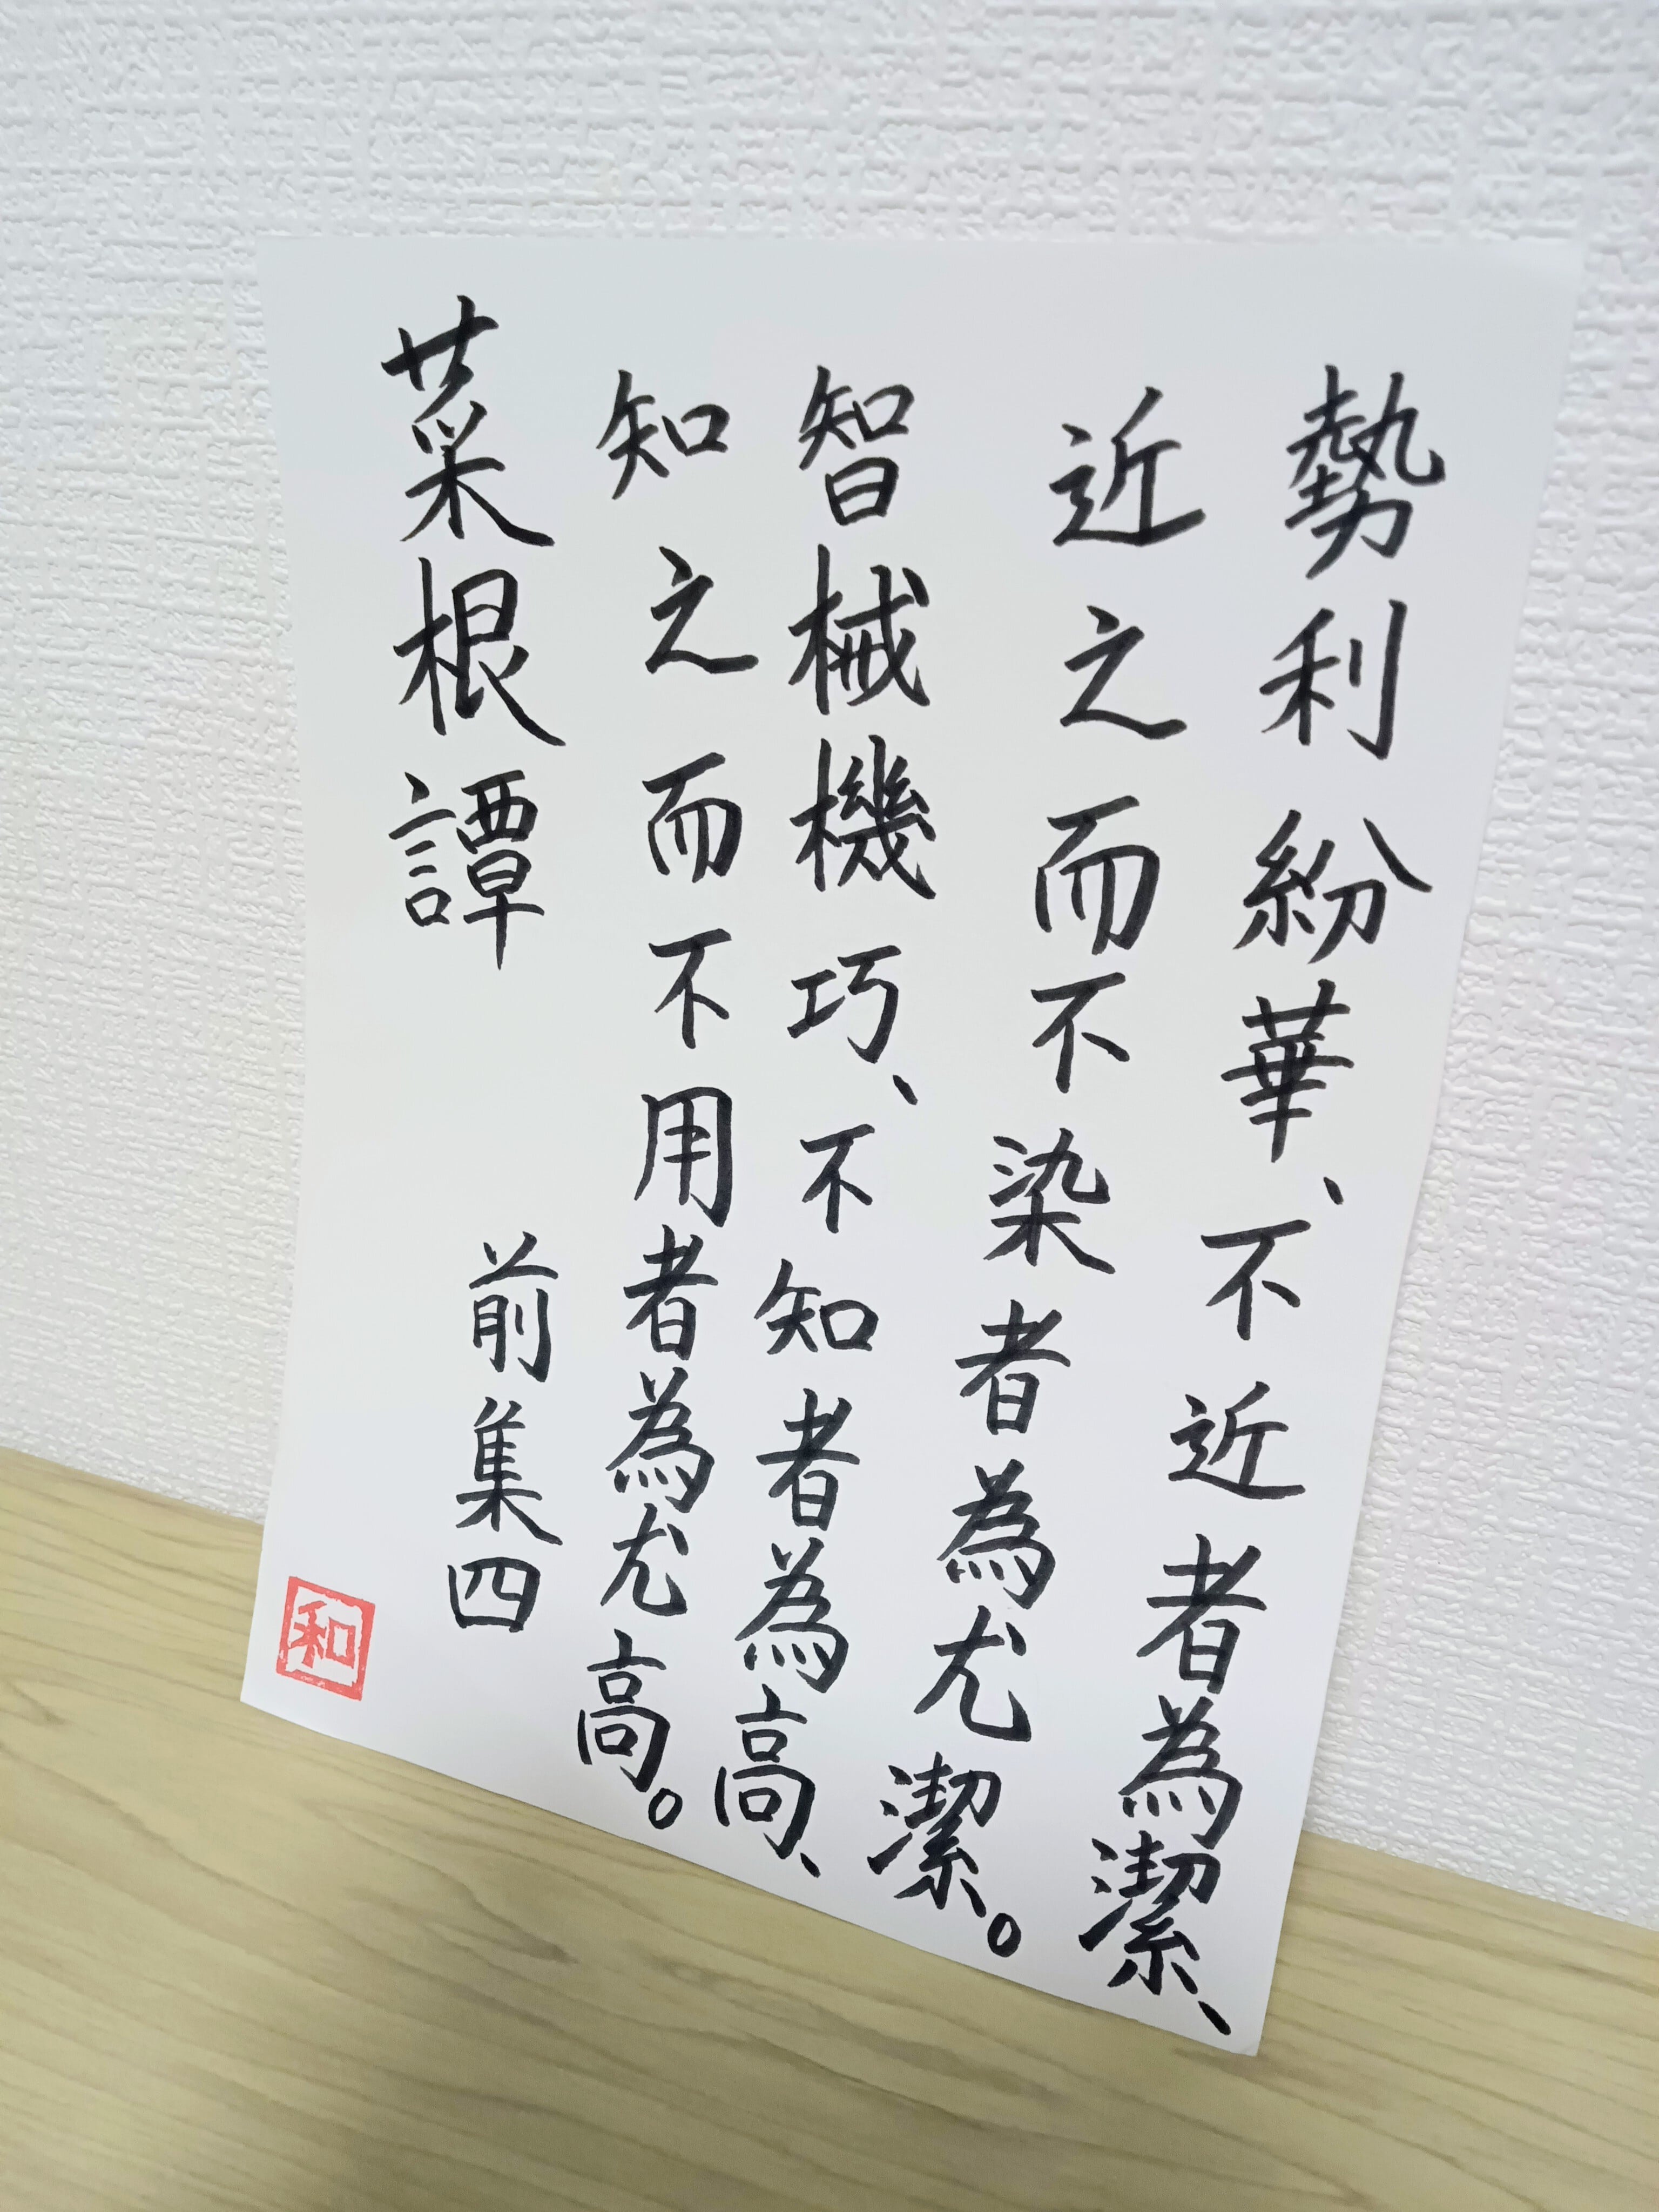 勢利紛華、不近者為潔、
近之而不染者為尤潔。
智械機巧、不知者為高、
知之而不用者為尤高。
菜根譚
前集四
和